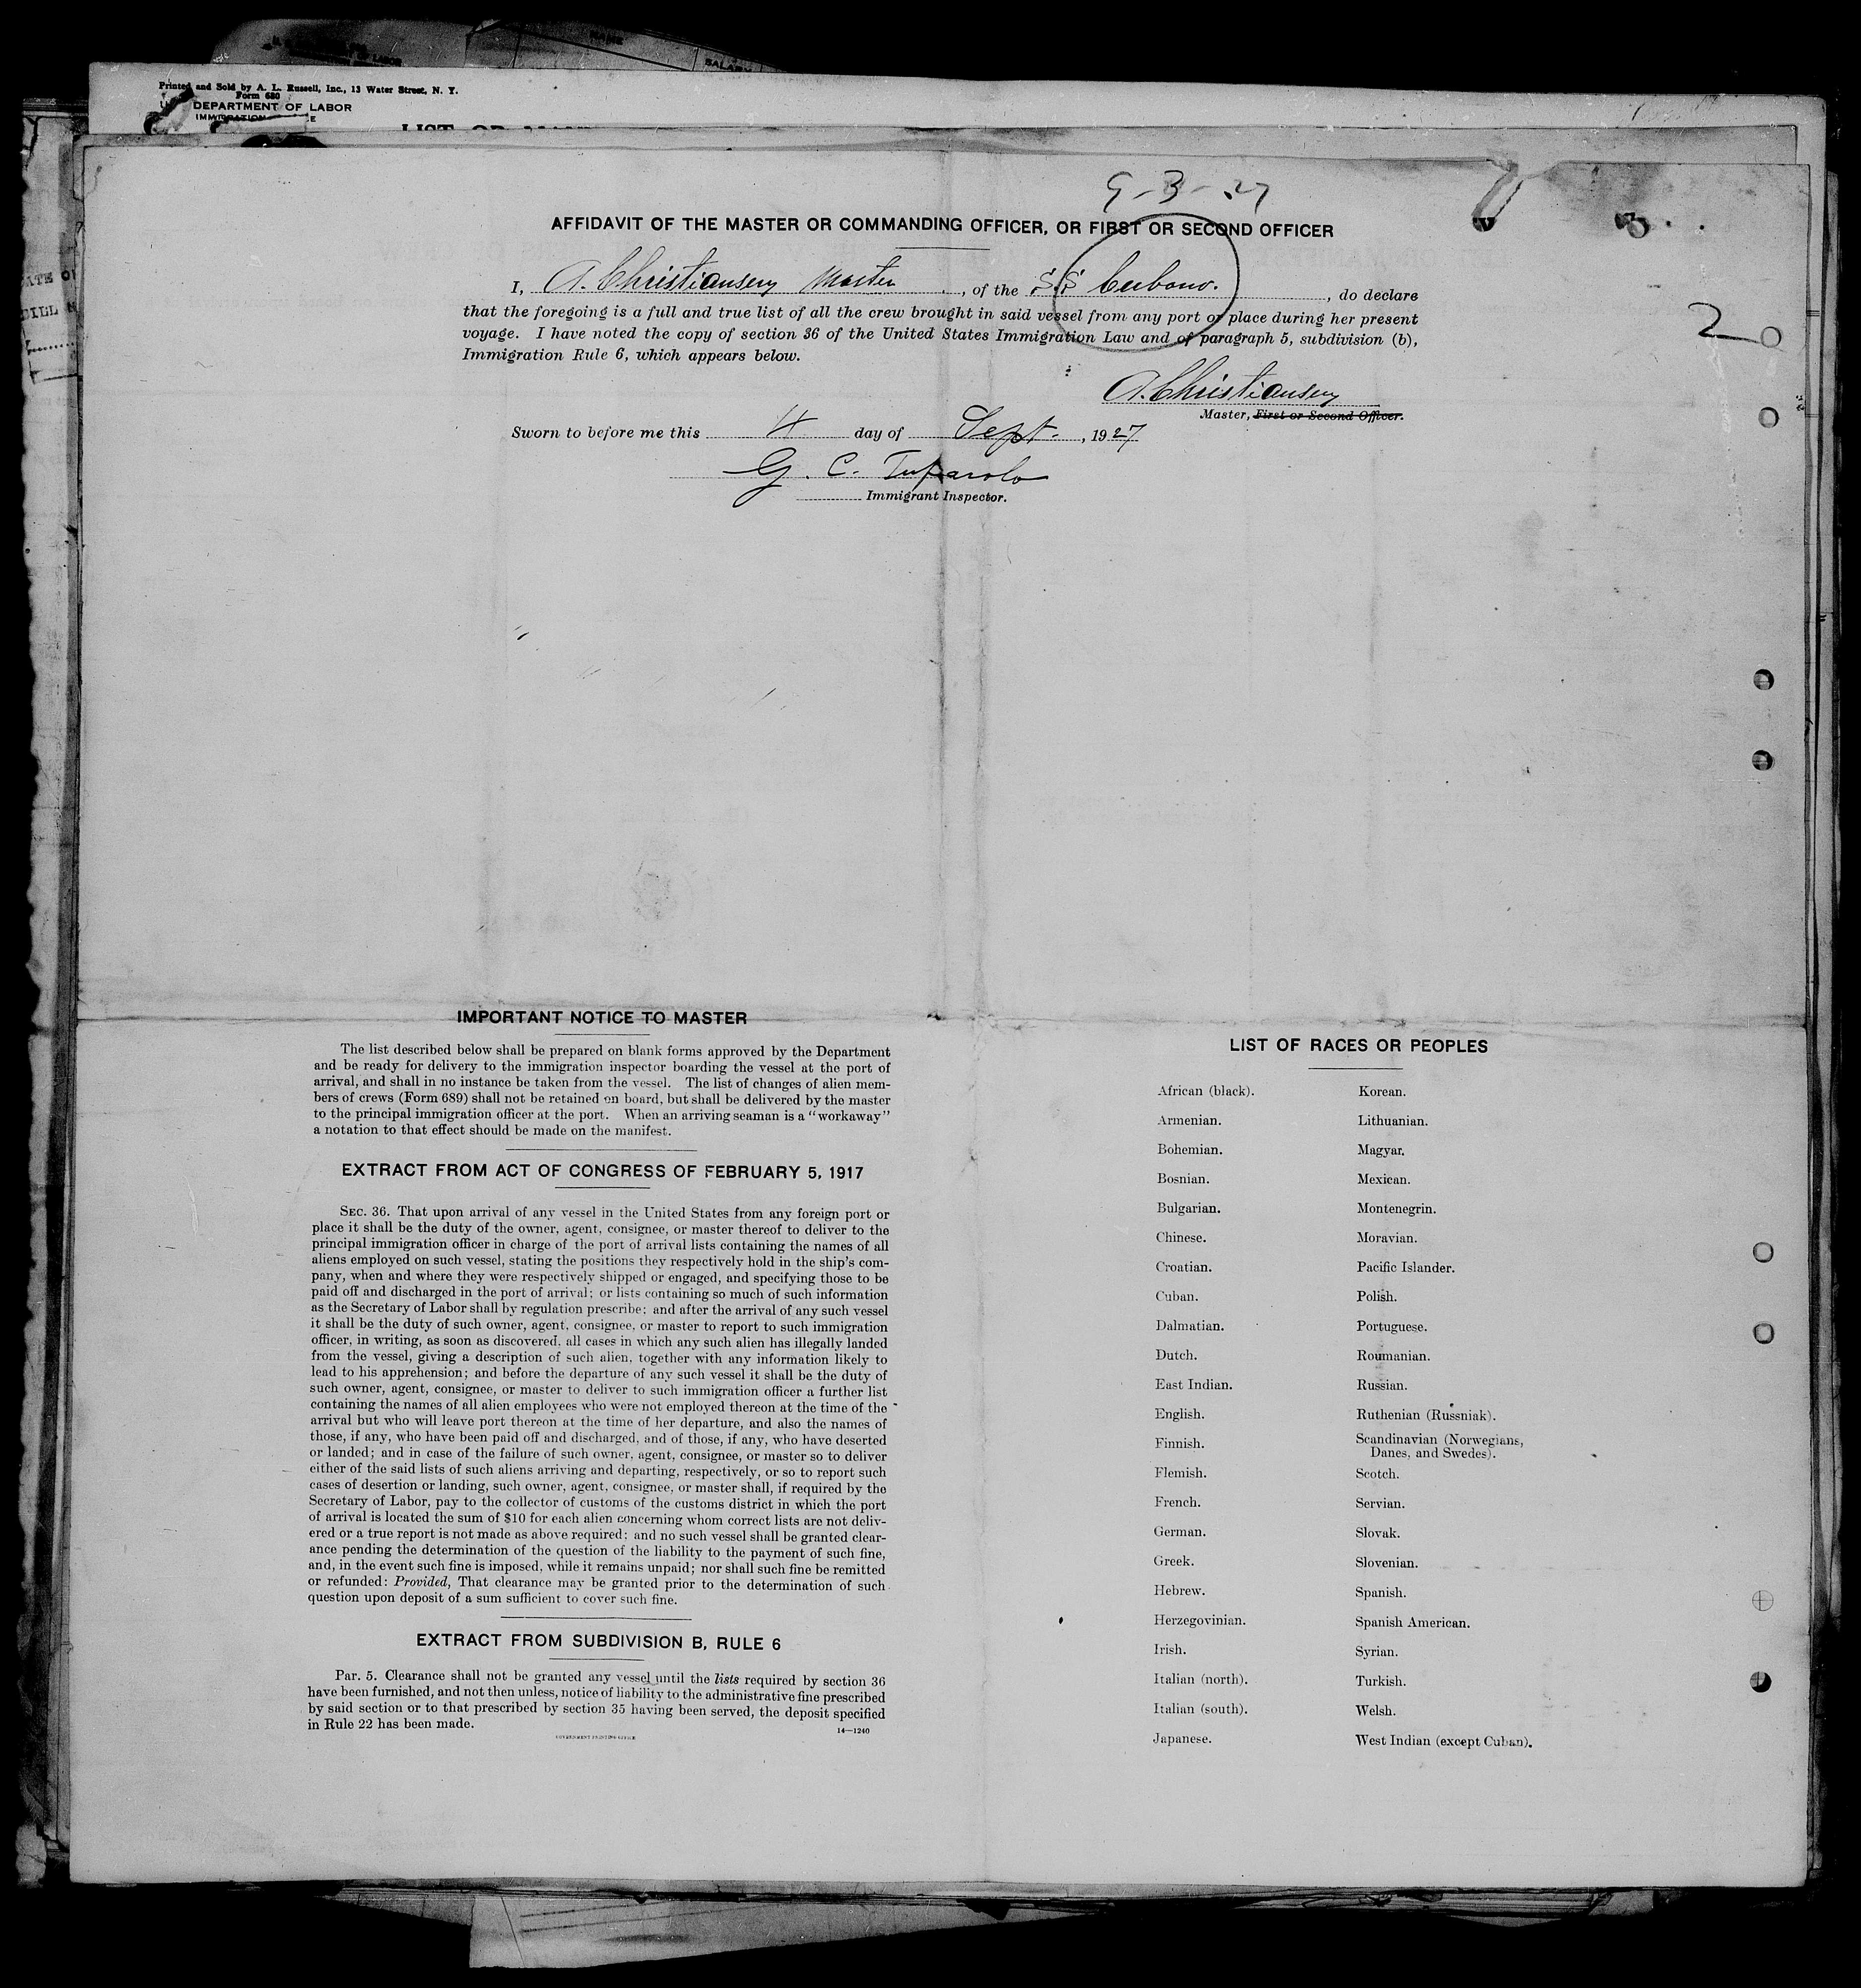 Printed and Sold by A. L. Russell, Inc., 13 Water Street, N. Y.
Form 680
DEPARTMENT OF LABOR
SALARY
9-3-27
AFFIDAVIT OF THE MASTER OR COMMANDING OFFICER, OR FIRST OR SECOND OFFICER
I, A. Christiansen Master, of the SS Cubano., do declare
that the foregoing is a full and true list of all the crew brought in said vessel from any port or place during her present
voyage. I have noted the copy of section 36 of the United States Immigration Law and of paragraph 5, subdivision (b),
Immigration Rule 6, which appears below.
2
A. Christiansen
Master, First or Second Officer.
Sworn to before me this 4 day of Sept., 1927
G. C.
Immigrant Inspector.
IMPORTANT NOTICE TO MASTER
The list described below shall be prepared on blank forms approved by the Department
and be ready for delivery to the immigration inspector boarding the vessel at the port of
arrival, and shall in no instance be taken from the vessel. The list of changes of alien mem-
bers of crews (Form 689) shall not be retained on board, but shall be delivered by the master
to the principal immigration officer at the port. When an arriving seaman is a "workaway"
a notation to that effect should be made on the manifest.
EXTRACT FROM ACT OF CONGRESS OF FEBRUARY 5, 1917
SEC. 36. That upon arrival of any vessel in the United States from any foreign port or
place it shall be the duty of the owner, agent, consignee, or master thereof to deliver to the
principal immigration officer in charge of the port of arrival lists containing the names of all
aliens employed on such vessel, stating the positions they respectively hold in the ship's com-
pany, when and where they were respectively shipped or engaged, and specifying those to be
paid off and discharged in the port of arrival; or lists containing so much of such information
as the Secretary of Labor shall by regulation prescribe; and after the arrival of any such vessel
it shall be the duty of such owner, agent, consignee, or master to report to such immigration
officer, in writing, as soon as discovered, all cases in which any such alien has illegally landed
from the vessel, giving a description of such alien, together with any information likely to
lead to his apprehension; and before the departure of any such vessel it shall be the duty of
such owner, agent, consignee, or master to deliver to such immigration officer a further list
containing the names of all alien employees who were not employed thereon at the time of the
arrival but who will leave port thereon at the time of her departure, and also the names of
those, if any, who have been paid off and discharged, and of those, if any, who have deserted
or landed; and in case of the failure of such owner, agent, consignee, or master so to deliver
either of the said lists of such aliens arriving and departing, respectively, or so to report such
cases of desertion or landing, such owner, agent, consignee, or master shall, if required by the
Secretary of Labor, pay to the collector of customs of the customs district in which the port
of arrival is located the sum of $10 for each alien concerning whom correct lists are not deliv-
ered or a true report is not made as above required; and no such vessel shall be granted clear-
ance pending the determination of the question of the liability to the payment of such fine,
and, in the event such fine is imposed, while it remains unpaid; nor shall such fine be remitted
or refunded: Provided, That clearance may be granted prior to the determination of such
question upon deposit of a sum sufficient to cover such fine.
EXTRACT FROM SUBDIVISION B, RULE 6
Par. 5. Clearance shall not be granted any vessel until the lists required by section 36
have been furnished, and not then unless, notice of liability to the administrative fine prescribed
by said section or to that prescribed by section 35 having been served, the deposit specified
in Rule 22 has been made.
GOVERNMENT PRINTING OFFICE
14—1240
LIST OF RACES OR PEOPLES
African (black).
Armenian.
Bohemian.
Bosnian.
Bulgarian.
Chinese.
Croatian.
Cuban.
Dalmatian.
Dutch.
East Indian.
English.
Finnish.
Flemish.
French.
German.
Greek.
Hebrew.
Herzegovinian.
Irish.
Italian (north).
Italian (south).
Japanese.
Korean.
Lithuanian.
Magyar.
Mexican.
Montenegrin.
Moravian.
Pacific Islander.
Polish.
Portuguese.
Roumanian.
Russian.
Ruthenian (Russniak).
Scandinavian (Norwegians,
Danes, and Swedes).
Scotch.
Servian.
Slovak.
Slovenian.
Spanish.
Spanish American.
Syrian.
Turkish.
Welsh.
West Indian (except Cuban).